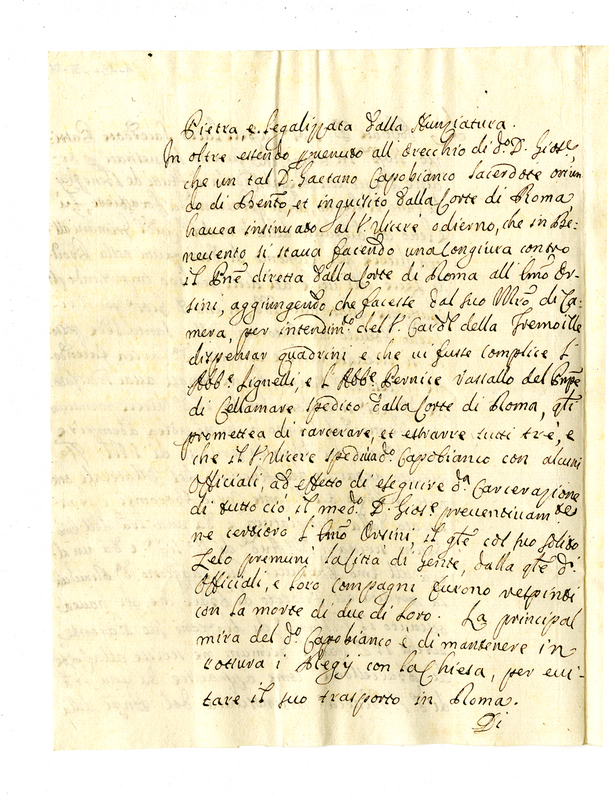 Pietra, e legalizzata dalla Nunziatura.
In oltre essendo pervenuto all'orecchio di d.º D. Giose,
che un tal D. Gaetano Capobianco Sacerdote oriun
do di Benᵗᵒ, et inquisito dalla Corte di Roma,
havea insinuato al V. Vicerè odierno, che in Be:
nevento si stava facendo una Congiura contro
il Pnê diretta dalla Corte di Roma all'Emô Or-
sini, aggiungendo, che facesse dal suo Mrô di Ca:
mera, per intendimᵗᵒ del V. Cardl della Tremoille
dispensar quadrini, e che vi fusse complice l'
Abbᵉ Lignelli, e l'Abbᵉ Pernice Vassallo del Pnpe
di Cellamare spedito dalla Corte di Roma, qti
promettea di carcerare, et estrarre tutti trè, e
che il V. Vicerè spedì d.º Capobianco con alcuni
Officiali, ad effetto di eseguire dª Carcerazione
di tutto ciò, il med.º D. Giosᵉ preventivamᵗᵉ
ne certiorò l'Emô Orsini, il qle col suo solito
Zelo premunì la Città di Gente, dalla qle di
Officiali, e loro compagni furono respinti
con la morte di due di loro. La principal
mira del d.º Capobianco è di mantenere in
rottura i Regij con la Chiesa, per evi-
tare il suo trasporto in Roma.
Di